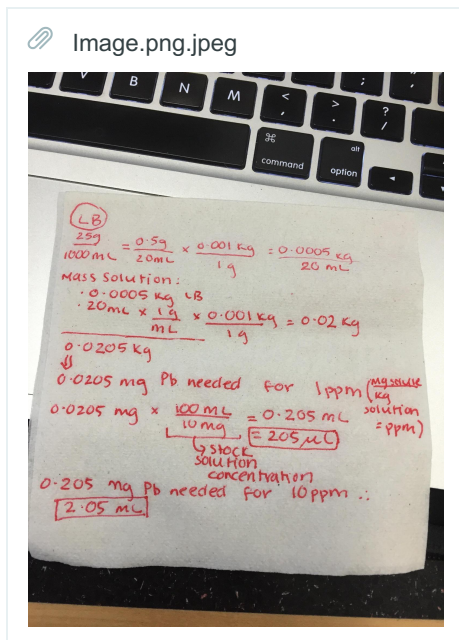 Image.png.jpeg
V B N M < , > . ? / ;
⌘ command
alt option
LB
25g / 1000 mL = 0.5g / 20mL × 0.001 kg / 1 g = 0.0005 kg / 20 mL
Mass solution:
· 0.0005 kg LB
· 20mL × 1g / mL × 0.001 kg / 1g = 0.02 kg
0.0205 kg
⇓
0.0205 mg Pb needed for 1ppm (mg solute / kg solution = ppm)
0.0205 mg × 100 mL / 10 mg = 0.205 mL
= 205 µL
↳ stock solution concentration
0.205 mg Pb needed for 10ppm ∴
2.05 mL